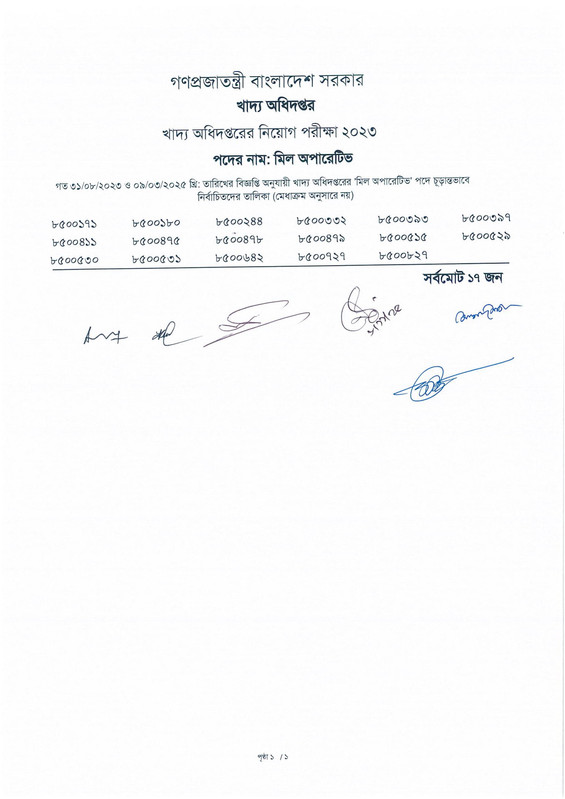 গণপ্রজাতন্ত্রী বাংলাদেশ সরকার
খাদ্য অধিদপ্তর
খাদ্য অধিদপ্তরের নিয়োগ পরীক্ষা ২০২৩
পদের নাম: মিল অপারেটিভ
গত ৩১/০৮/২০২৩ ও ০৯/০৩/২০২৫ খ্রি: তারিখের বিজ্ঞপ্তি অনুযায়ী খাদ্য অধিদপ্তরের 'মিল অপারেটিভ' পদে চূড়ান্তভাবে
নির্বাচিতদের তালিকা (মেধাক্রম অনুসারে নয়)
৮৫০০১৭১ ৮৫০০১৮০ ৮৫০০২৪৪ ৮৫০০৩৩২ ৮৫০০৩৯৩ ৮৫০০৩৯৭
৮৫০০৪১১ ৮৫০০৪৭৫ ৮৫০০৪৭৮ ৮৫০০৪৭৯ ৮৫০০৫১৫ ৮৫০০৫২৯
৮৫০০৫৩০ ৮৫০০৫৩১ ৮৫০০৬৪২ ৮৫০০৭২৭ ৮৫০০৮২৭
সর্বমোট ১৭ জন
পৃষ্ঠা ১ /১